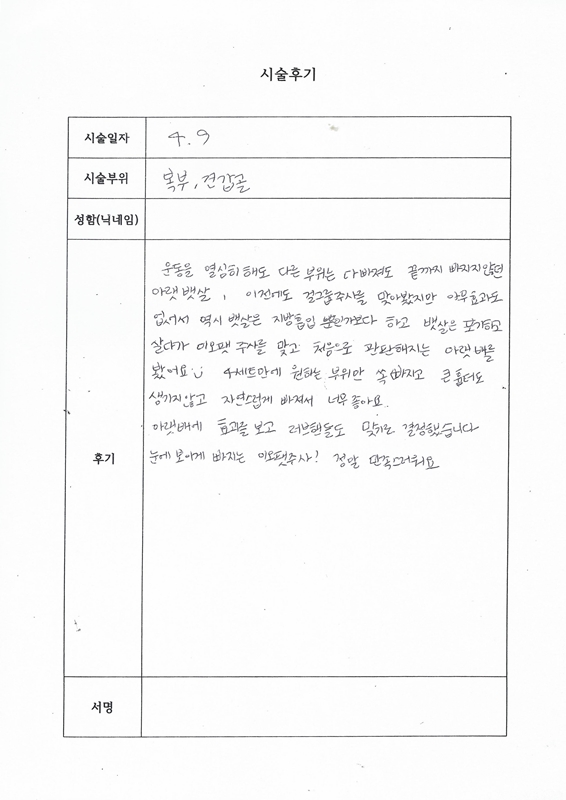 시술후기
시술일자 4.9
시술부위 복부, 견갑골
성함(닉네임)
운동을 열심히해도 다른 부위는 다빠져도 끝까지 빠지지않던
아랫뱃살, 이전에도 걸그룹주사를 맞아봤지만 아무효과도
없어서 역시 뱃살은 지방흡입 뿐인가보다 하고 뱃살은 포기하고
살다가 이오팻 주사를 맞고 처음으로 판판해지는 아랫배를
봤어요 4세트만에 원하는 부위만 쏙 빠지고 큰 흉터도
생기지않고 자연스럽게 빠져서 너무 좋아요..
아랫배에 효과를 보고 러브핸들도 맞기로 결정했습니다
후기
눈에 보이게 빠지는 이오팻주사! 정말 만족스러워요
서명